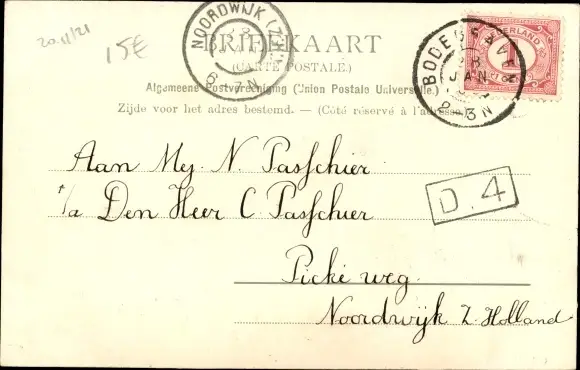 20.11/21
15€
NOORDWIJK (Z.H.)
6-7N
BRIEFKAART
(CARTE POSTALE.)
Algemeene Postvereeniging (Union Postale Universelle.)
Zijde voor het adres bestemd. — (Côté réservé à l'adresse.)
BODEGRAVEN
JAN
2-3N
NEDERLAND
1
Aan Mej. N. Passchier
p/a Den Heer C. Passchier
D.4
Pické weg.
Noordwijk Z. Holland